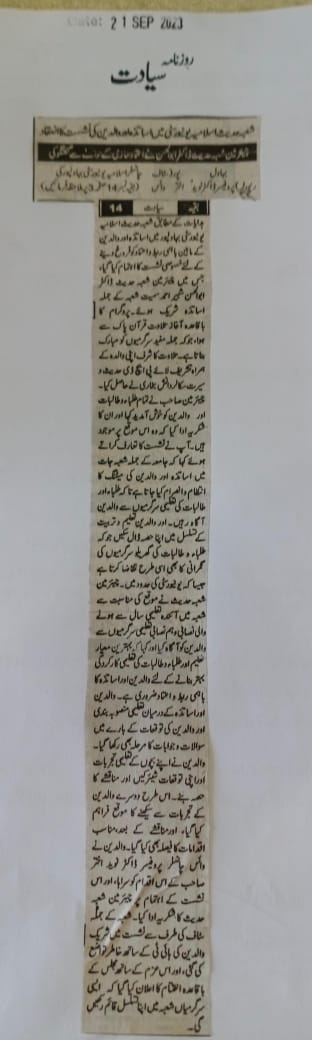 Date: 21 SEP 2023
روزنامہ
سیادت
شعبہ حدیث اسلامیہ یونیورسٹی میں اساتذہ اور والدین کی نشست کا انعقاد
چیئرمین شعبہ حدیث ڈاکٹر ابوالحسن نے
بہاول
بقیہ سیادت 14
ہدایات کے مطابق شعبہ حدیث اسلامیہ
یونیورسٹی بہاولپور میں اساتذہ اور والدین
کے مابین باہمی ربط و اعتماد کو فروغ دینے
کے لئے خصوصی نشست کا اہتمام کیا گیا،
جس میں چیئرمین شعبہ حدیث ڈاکٹر
ابوالحسن شبیر احمد سمیت شعبہ کے جملہ
اساتذہ شریک ہوئے۔ پروگرام کا
باقاعدہ آغاز تلاوت قرآن پاک سے
ہوا، جو کہ جملہ مفید سرگرمیوں کو مبارک
بناتا ہے۔ تلاوت کا شرف اپنی والدہ کے
ہمراہ تشریف لائے پی ایچ ڈی حدیث و
سیرت سکالر دانش بخاری نے حاصل کیا۔
چیئرمین صاحب نے تمام طلباء و طالبات
اور والدین کو خوش آمدید کہا اور ان کا
شکریہ ادا کیا کہ وہ اس موقع پر موجود
ہیں۔ آپ نے نشست کا تعارف کراتے
ہوئے کہا کہ جامعہ کے جملہ شعبہ جات
میں اساتذہ اور والدین کی میٹنگ کا
انتظام و انصرام کیا جاتا ہے تاکہ طلباء اور
طالبات کی تعلیمی سرگرمیوں سے والدین
آگاہ رہیں۔ اور والدین تعلیم و تربیت
کے تسلسل میں اپنا حصہ ڈال سکیں جو کہ
طلباء و طالبات کی گھریلو سرگرمیوں کی
نگرانی کا بھی اسی طرح تقاضا کرتا ہے
جیسا کہ یونیورسٹی کی حدود میں۔ چیئرمین
شعبہ حدیث نے موقع کی مناسبت سے
شعبہ میں آئندہ تعلیمی سال سے ہونے
والی نصابی و ہم نصابی تعلیمی سرگرمیوں سے
والدین کو آگاہ کیا اور کہا کہ بہترین معیار
تعلیم اور طلباء و طالبات کی تعلیمی کارکردگی
بہتر بنانے کے لئے والدین اور اساتذہ کا
باہمی ربط و اعتماد ضروری ہے۔ والدین
اور اساتذہ کے درمیان تعلیمی منصوبہ بندی
اور والدین کی توقعات کے بارے میں
سوالات و جوابات کا مرحلہ بھی رکھا گیا۔
والدین نے اپنے بچوں کے تعلیمی تجربات
اور اپنی توقعات شیئر کیں اور مناقشے کا
حصہ بنے۔ اس طرح دوسرے والدین
کے تجربات سے سیکھنے کا موقع فراہم
کیا گیا، اور مناقشے کے بعد مناسب
اقدامات کا فیصلہ بھی کیا گیا۔ والدین نے
وائس چانسلر پروفیسر ڈاکٹر نوید اختر
صاحب کے اس اقدام کو سراہا، اور اس
نشست کے اہتمام پر چیئرمین شعبہ
حدیث کا شکریہ ادا کیا۔ شعبہ کے جملہ
سٹاف کی طرف سے نشست میں شریک
والدین کی ہائی ٹی کے ساتھ خاطر تواضع
کی گئی، اور اس عزم کے ساتھ مجلس کے
باقاعدہ اختتام کا اعلان کیا گیا کہ ایسی
سرگرمیاں شعبہ میں اپنا تسلسل قائم رکھیں
گی۔